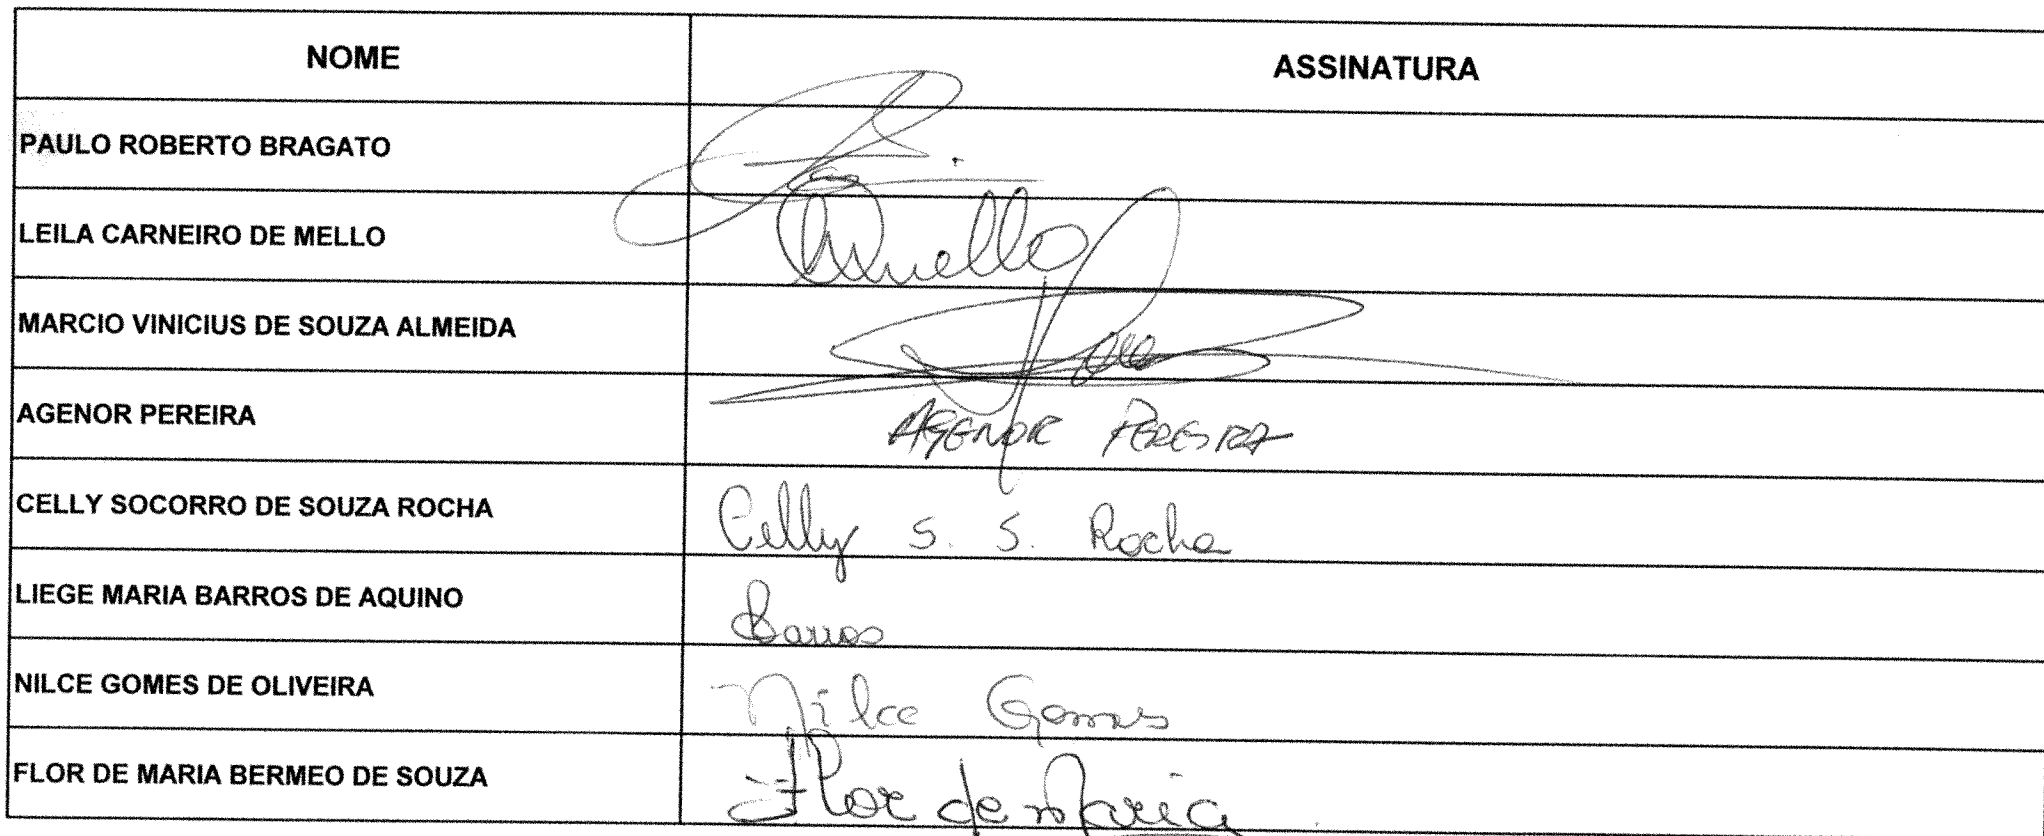 NOME ASSINATURA
PAULO ROBERTO BRAGATO
LEILA CARNEIRO DE MELLO Mello
MARCIO VINICIUS DE SOUZA ALMEIDA
AGENOR PEREIRA AGENOR PEREIRA
CELLY SOCORRO DE SOUZA ROCHA Celly S. S. Rocha
LIEGE MARIA BARROS DE AQUINO Barros
NILCE GOMES DE OLIVEIRA Nilce Gomes
FLOR DE MARIA BERMEO DE SOUZA Flor de Maria